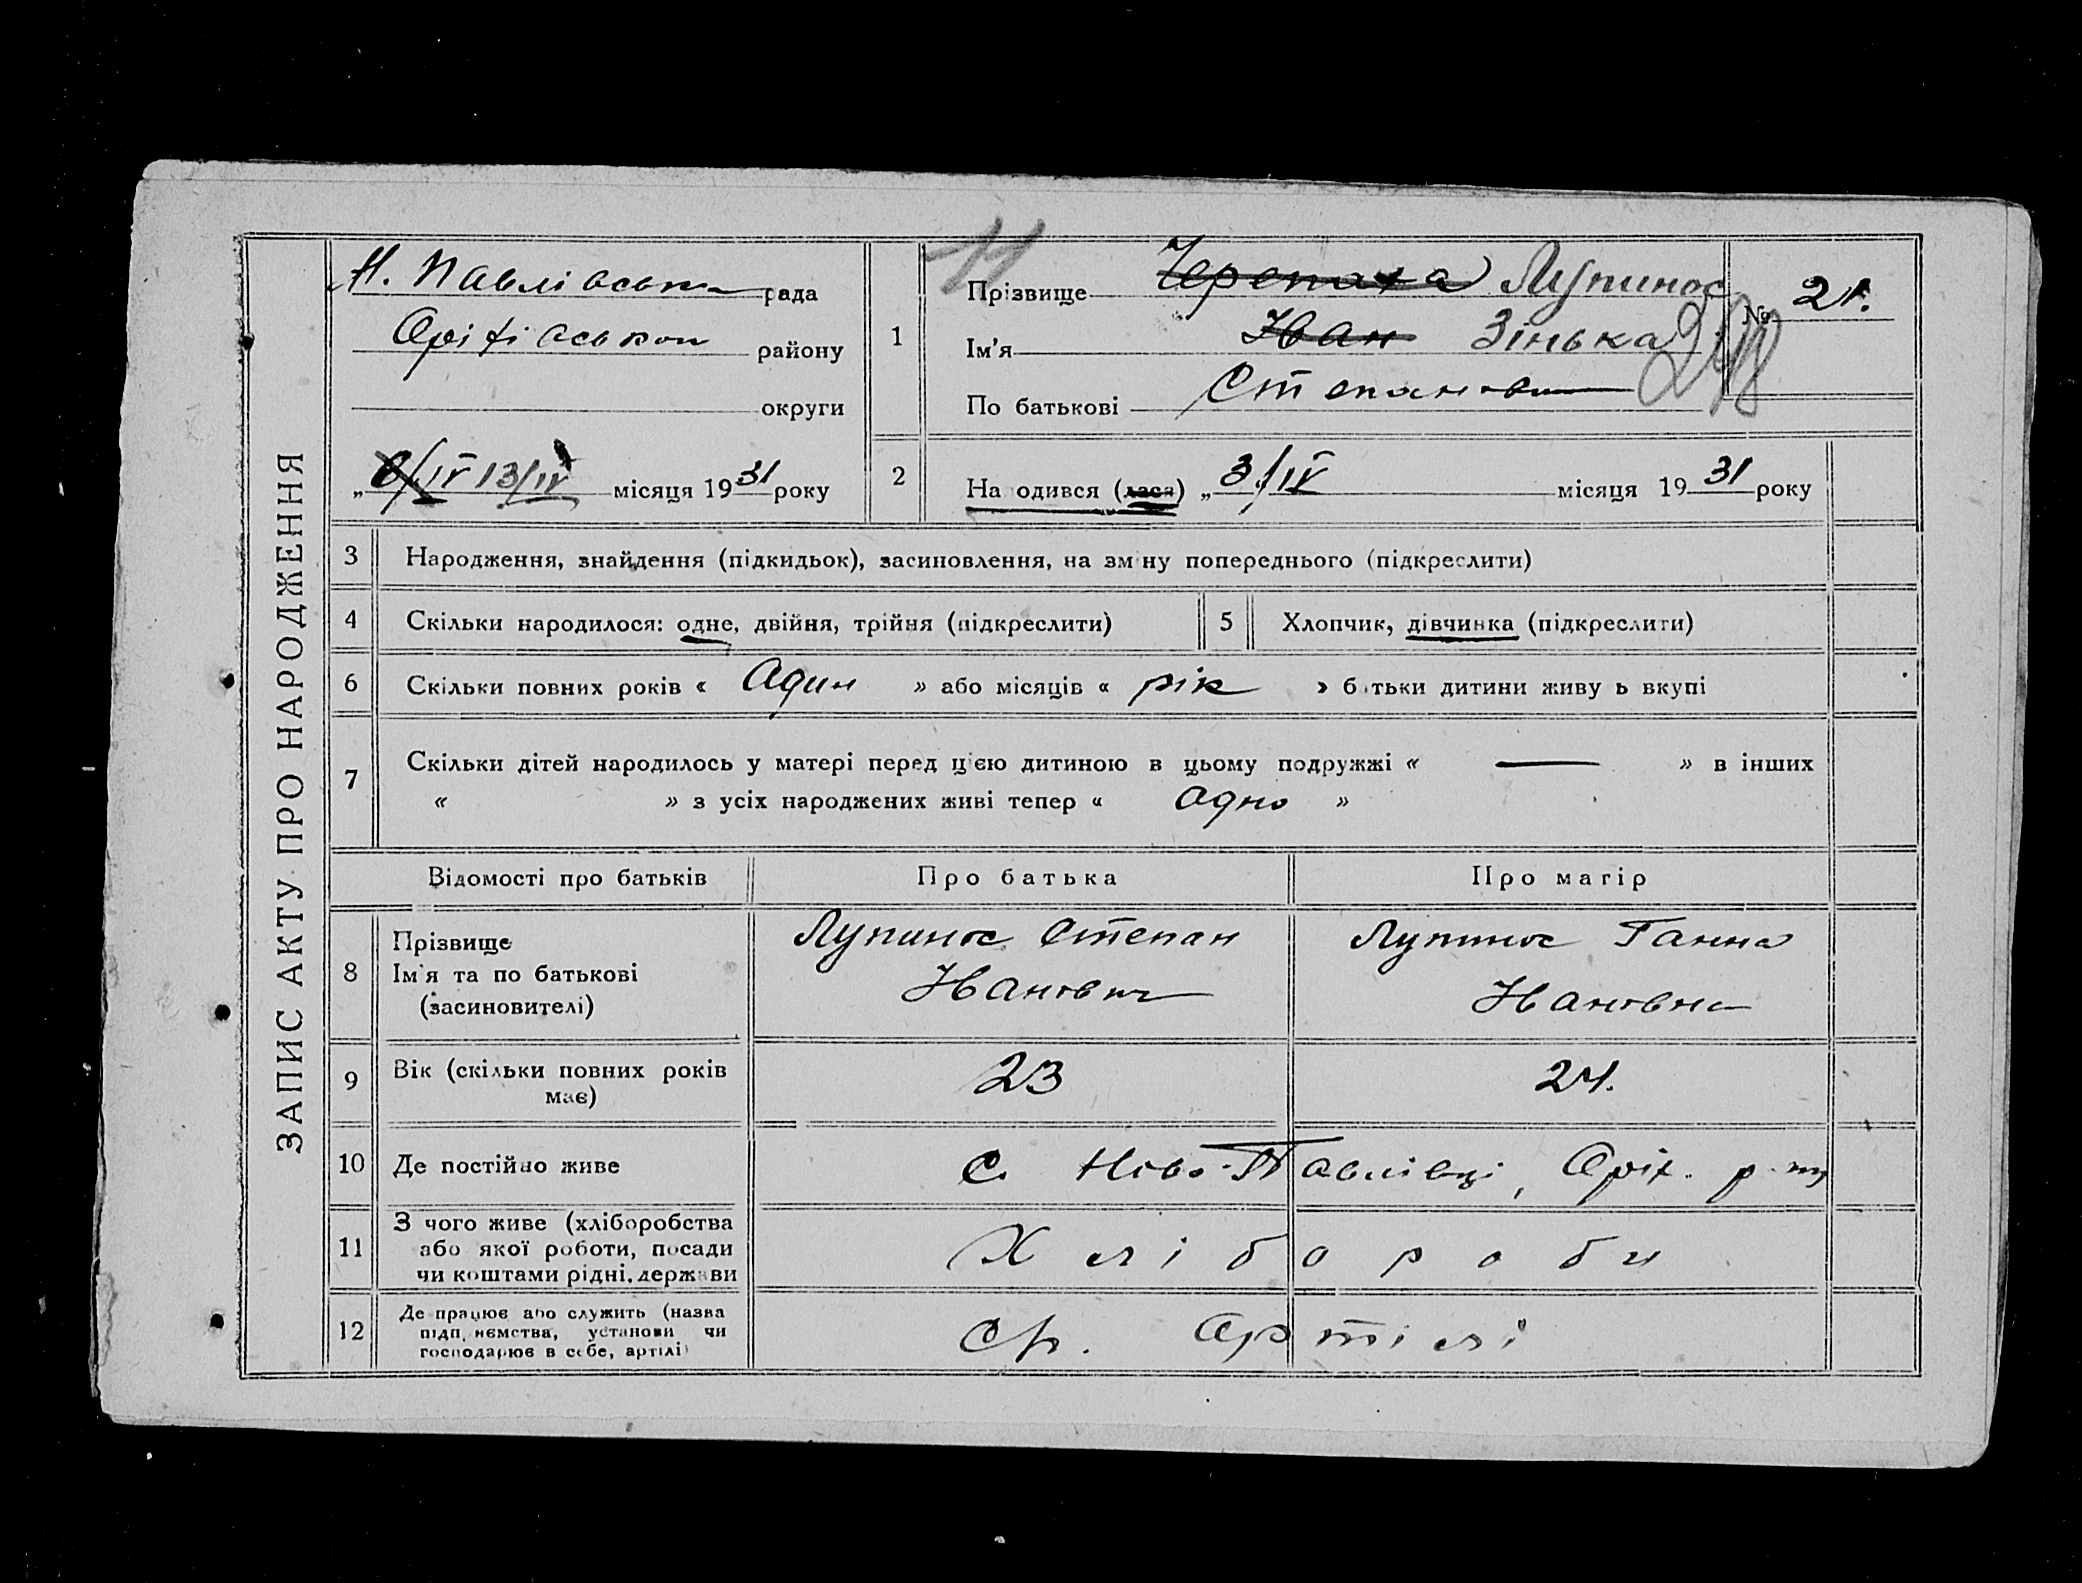 ЗАПИС АКТУ ПРО НАРОДЖЕННЯ
Н. Павлівська рада
Оріхівськои району
округи
„ 6/IV 13/IV місяця 1931 року
11
1
Прізвище Черепаха Лупинос
Ім'я Іван Зінька
По батькові Степанови
№ 21.
298
2
На одився (лася) „ 3/IV місяця 1931 року
3 Народження, знайдення (підкидьок), засиновлення, на зміну попереднього (підкреслити)
4 Скільки народилося: одне, двійня, трійня (підкреслити) 5 Хлопчик, дівчинка (підкреслити)
6 Скільки повних років « Один » або місяців « рік » батьки дитини живу ь вкупі
7 Скільки дітей народилось у матері перед цією дитиною в цьому подружжі « — » в інших
« » з усіх народжених живі тепер « одно »
Відомості про батьків Про батька Про матір
8 Прізвище
Ім'я та по батькові
(засиновителі)
Лупинос Степан
Иванович
Лупинос Ганна
Ивановна
9 Вік (скільки повних років
має)
23 24.
10 Де постійно живе с. Ново-Павлівці, Оріх. р-ну
11 З чого живе (хліборобства
або якої роботи, посади
чи коштами рідні, держави
Хлібороби
12 Де працює або служить (назва
підп, иємства, установи чи
господарює в себе, артілі)
Ср. Артілі